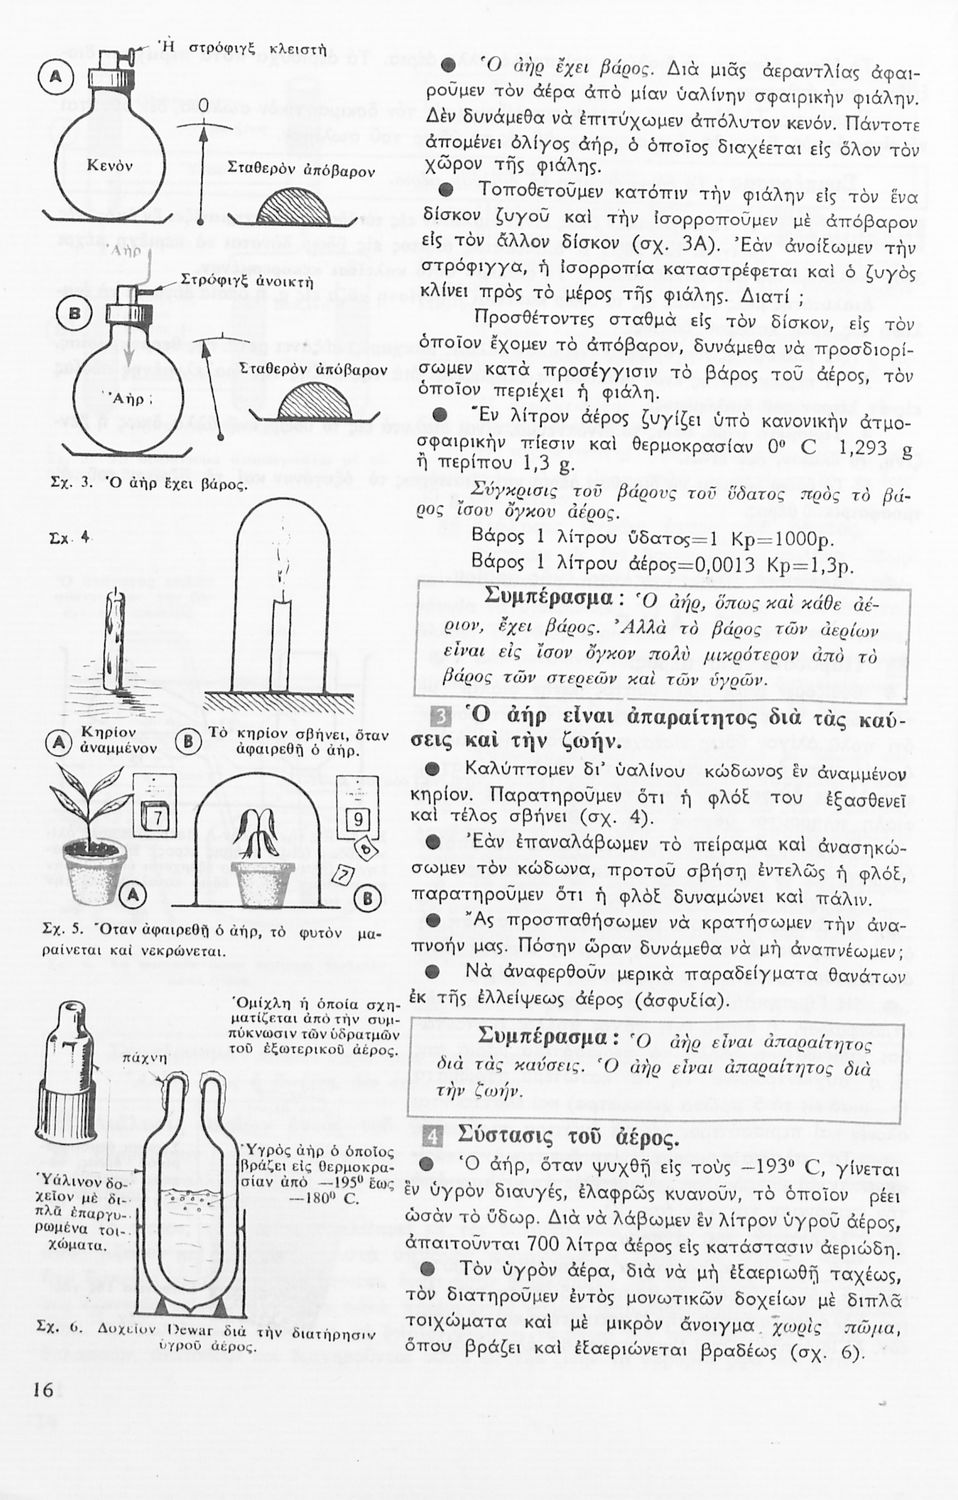 Ἡ στρόφιγξ κλειστὴ
A
0
Κενὸν
Σταθερὸν ἀπόβαρον
Ἀὴρ
Στρόφιγξ ἀνοικτὴ
B
Σταθερὸν ἀπόβαρον
Ἀὴρ
Σχ. 3. Ὁ ἀὴρ ἔχει βάρος.
Σχ. 4
A
Κηρίον
ἀναμμένον
B
Τὸ κηρίον σβήνει, ὅταν
ἀφαιρεθῇ ὁ ἀήρ.
7
9
8
7
A
B
Σχ. 5. Ὅταν ἀφαιρεθῇ ὁ ἀήρ, τὸ φυτὸν μα-
ραίνεται καὶ νεκρώνεται.
Ὁμίχλη ἡ ὁποία σχη-
ματίζεται ἀπὸ τὴν συμ-
πύκνωσιν τῶν ὑδρατμῶν
τοῦ ἐξωτερικοῦ ἀέρος.
πάχνη
Ὑγρὸς ἀὴρ ὁ ὁποῖος
βράζει εἰς θερμοκρα-
σίαν ἀπὸ —195⁰ ἕως
—180⁰ C.
Ὑάλινον δο-
χεῖον μὲ δι-
πλᾶ ἐπαργυ-
ρωμένα τοι-
χώματα.
Σχ. 6. Δοχεῖον Dewar διὰ τὴν διατήρησιν
ὑγροῦ ἀέρος.
16
● Ὁ ἀὴρ ἔχει βάρος. Διὰ μιᾶς ἀεραντλίας ἀφαι-
ροῦμεν τὸν ἀέρα ἀπὸ μίαν ὑαλίνην σφαιρικὴν φιάλην.
Δὲν δυνάμεθα νὰ ἐπιτύχωμεν ἀπόλυτον κενόν. Πάντοτε
ἀπομένει ὀλίγος ἀήρ, ὁ ὁποῖος διαχέεται εἰς ὅλον τὸν
χῶρον τῆς φιάλης.
● Τοποθετοῦμεν κατόπιν τὴν φιάλην εἰς τὸν ἕνα
δίσκον ζυγοῦ καὶ τὴν ἰσορροποῦμεν μὲ ἀπόβαρον
εἰς τὸν ἄλλον δίσκον (σχ. 3Α). Ἐὰν ἀνοίξωμεν τὴν
στρόφιγγα, ἡ ἰσορροπία καταστρέφεται καὶ ὁ ζυγὸς
κλίνει πρὸς τὸ μέρος τῆς φιάλης. Διατί ;
Προσθέτοντες σταθμὰ εἰς τὸν δίσκον, εἰς τὸν
ὁποῖον ἔχομεν τὸ ἀπόβαρον, δυνάμεθα νὰ προσδιορί-
σωμεν κατὰ προσέγγισιν τὸ βάρος τοῦ ἀέρος, τὸν
ὁποῖον περιέχει ἡ φιάλη.
● Ἓν λίτρον ἀέρος ζυγίζει ὑπὸ κανονικὴν ἀτμο-
σφαιρικὴν πίεσιν καὶ θερμοκρασίαν 0⁰ C 1,293 g
ἢ περίπου 1,3 g.
Σύγκρισις τοῦ βάρους τοῦ ὕδατος πρὸς τὸ βά-
ρος ἴσου ὄγκου ἀέρος.
Βάρος 1 λίτρου ὕδατος=1 Kp=1000p.
Βάρος 1 λίτρου ἀέρος=0,0013 Kp=1,3p.
Συμπέρασμα : Ὁ ἀήρ, ὅπως καὶ κάθε ἀέ-
ριον, ἔχει βάρος. Ἀλλὰ τὸ βάρος τῶν ἀερίων
εἶναι εἰς ἴσον ὄγκον πολὺ μικρότερον ἀπὸ τὸ
βάρος τῶν στερεῶν καὶ τῶν ὑγρῶν.
3 Ὁ ἀὴρ εἶναι ἀπαραίτητος διὰ τὰς καύ-
σεις καὶ τὴν ζωήν.
● Καλύπτομεν δι’ ὑαλίνου κώδωνος ἓν ἀναμμένον
κηρίον. Παρατηροῦμεν ὅτι ἡ φλόξ του ἐξασθενεῖ
καὶ τέλος σβήνει (σχ. 4).
● Ἐὰν ἐπαναλάβωμεν τὸ πείραμα καὶ ἀνασηκώ-
σωμεν τὸν κώδωνα, προτοῦ σβήσῃ ἐντελῶς ἡ φλόξ,
παρατηροῦμεν ὅτι ἡ φλὸξ δυναμώνει καὶ πάλιν.
● Ἂς προσπαθήσωμεν νὰ κρατήσωμεν τὴν ἀνα-
πνοήν μας. Πόσην ὥραν δυνάμεθα νὰ μὴ ἀναπνέωμεν;
● Νὰ ἀναφερθοῦν μερικὰ παραδείγματα θανάτων
ἐκ τῆς ἐλλείψεως ἀέρος (ἀσφυξία).
Συμπέρασμα : Ὁ ἀὴρ εἶναι ἀπαραίτητος
διὰ τὰς καύσεις. Ὁ ἀὴρ εἶναι ἀπαραίτητος διὰ
τὴν ζωήν.
4 Σύστασις τοῦ ἀέρος.
● Ὁ ἀήρ, ὅταν ψυχθῇ εἰς τοὺς —193⁰ C, γίνεται
ἓν ὑγρὸν διαυγές, ἐλαφρῶς κυανοῦν, τὸ ὁποῖον ρέει
ὡσὰν τὸ ὕδωρ. Διὰ νὰ λάβωμεν ἓν λίτρον ὑγροῦ ἀέρος,
ἀπαιτοῦνται 700 λίτρα ἀέρος εἰς κατάστασιν ἀεριώδη.
● Τὸν ὑγρὸν ἀέρα, διὰ νὰ μὴ ἐξαεριωθῇ ταχέως,
τὸν διατηροῦμεν ἐντὸς μονωτικῶν δοχείων μὲ διπλᾶ
τοιχώματα καὶ μὲ μικρὸν ἄνοιγμα χωρὶς πῶμα,
ὅπου βράζει καὶ ἐξαεριώνεται βραδέως (σχ. 6).